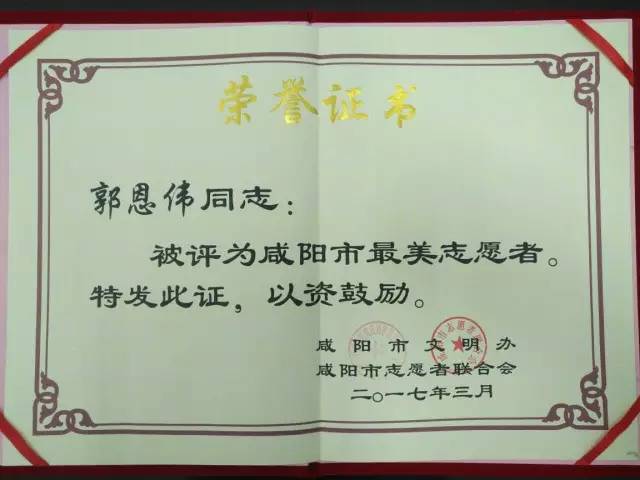 荣誉证书
郭恩伟同志：
被评为咸阳市最美志愿者。
特发此证，以资鼓励。
咸阳市文明办
咸阳市志愿者联合会
二〇一七年三月